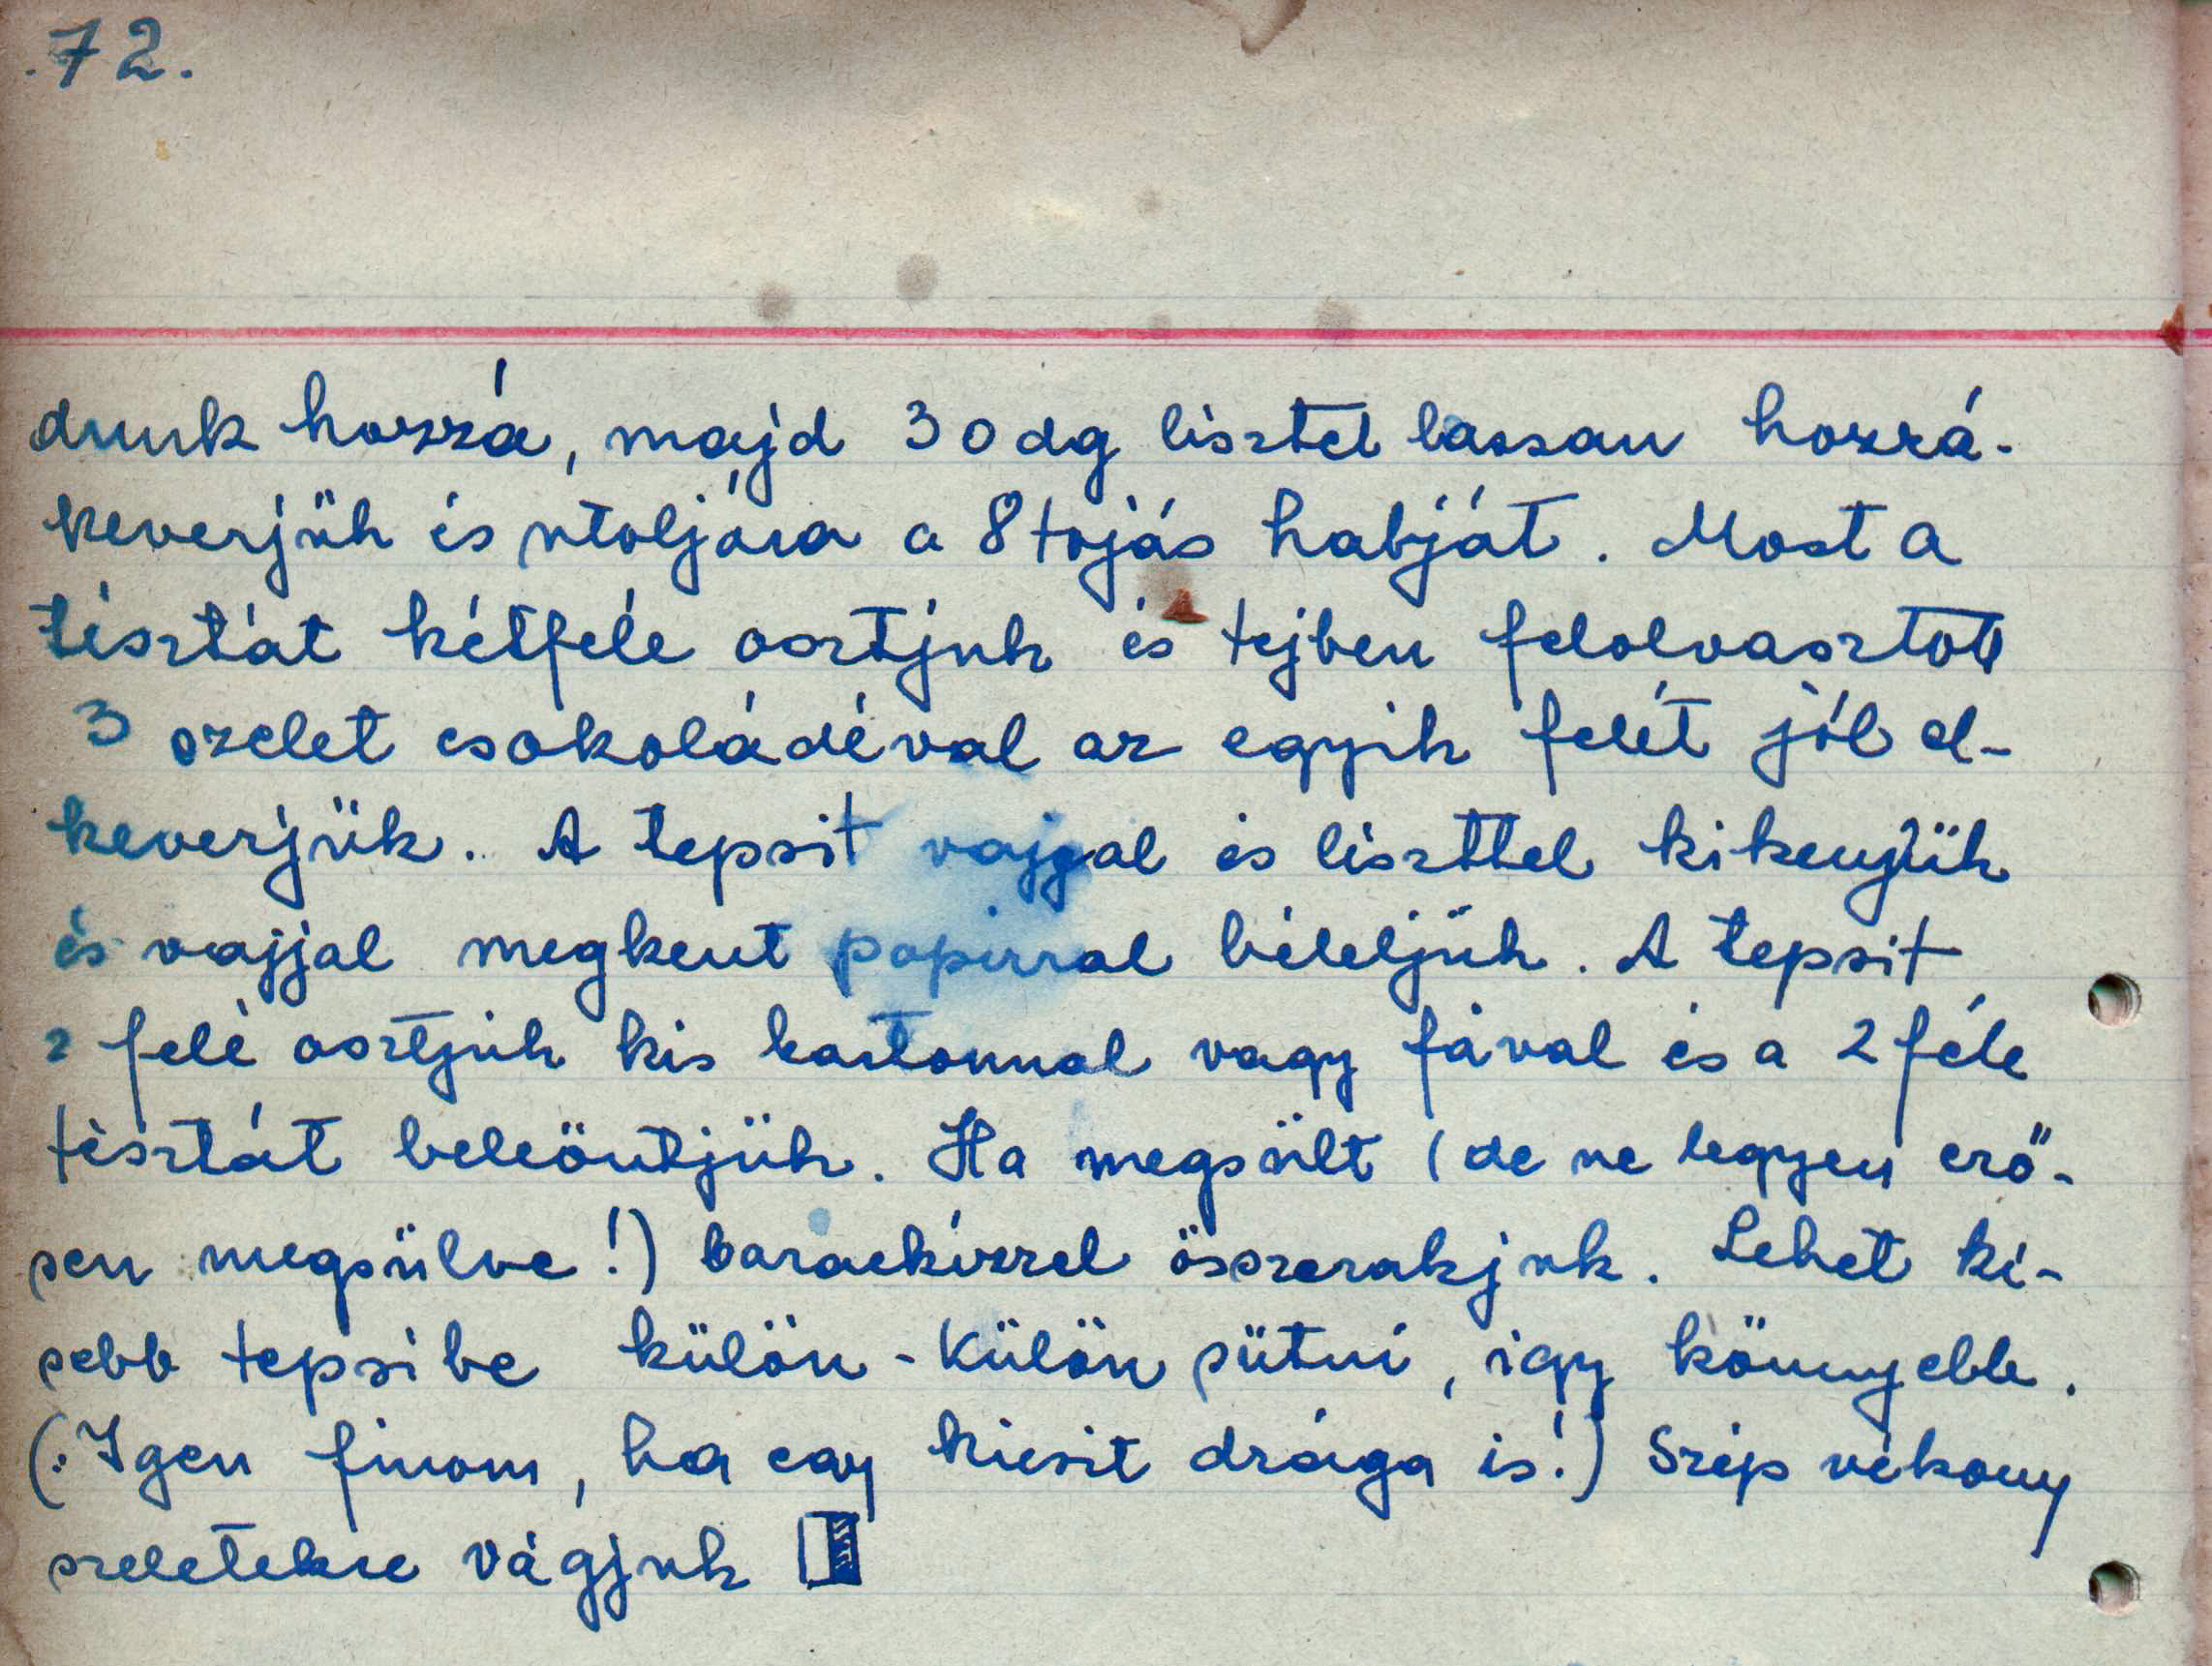 .72.
dunk hozzá, majd 30 dg lisztet lassan hozzá-
keverjük és utoljára a 8 tojás habját. Most a
tésztát kétfelé osztjuk és tejben felolvasztott
3 szelet csokoládéval az egyik felét jól el-
keverjük. A tepsit vajjal és liszttel kikenjük
és vajjal megkent papirral béleljük. A tepsit
2 felé osztjuk kis kartonnal vagy fával és a 2 féle
tésztát beleöntjük. Ha megsült (de ne legyen erő-
sen megsülve!) barackízzel összerakjuk. Lehet ki-
sebb tepsibe külön-külön sütni, igy könnyebb.
(:Igen finom, ha egy kicsit drága is!) Szép vékony
szeletekre vágjuk